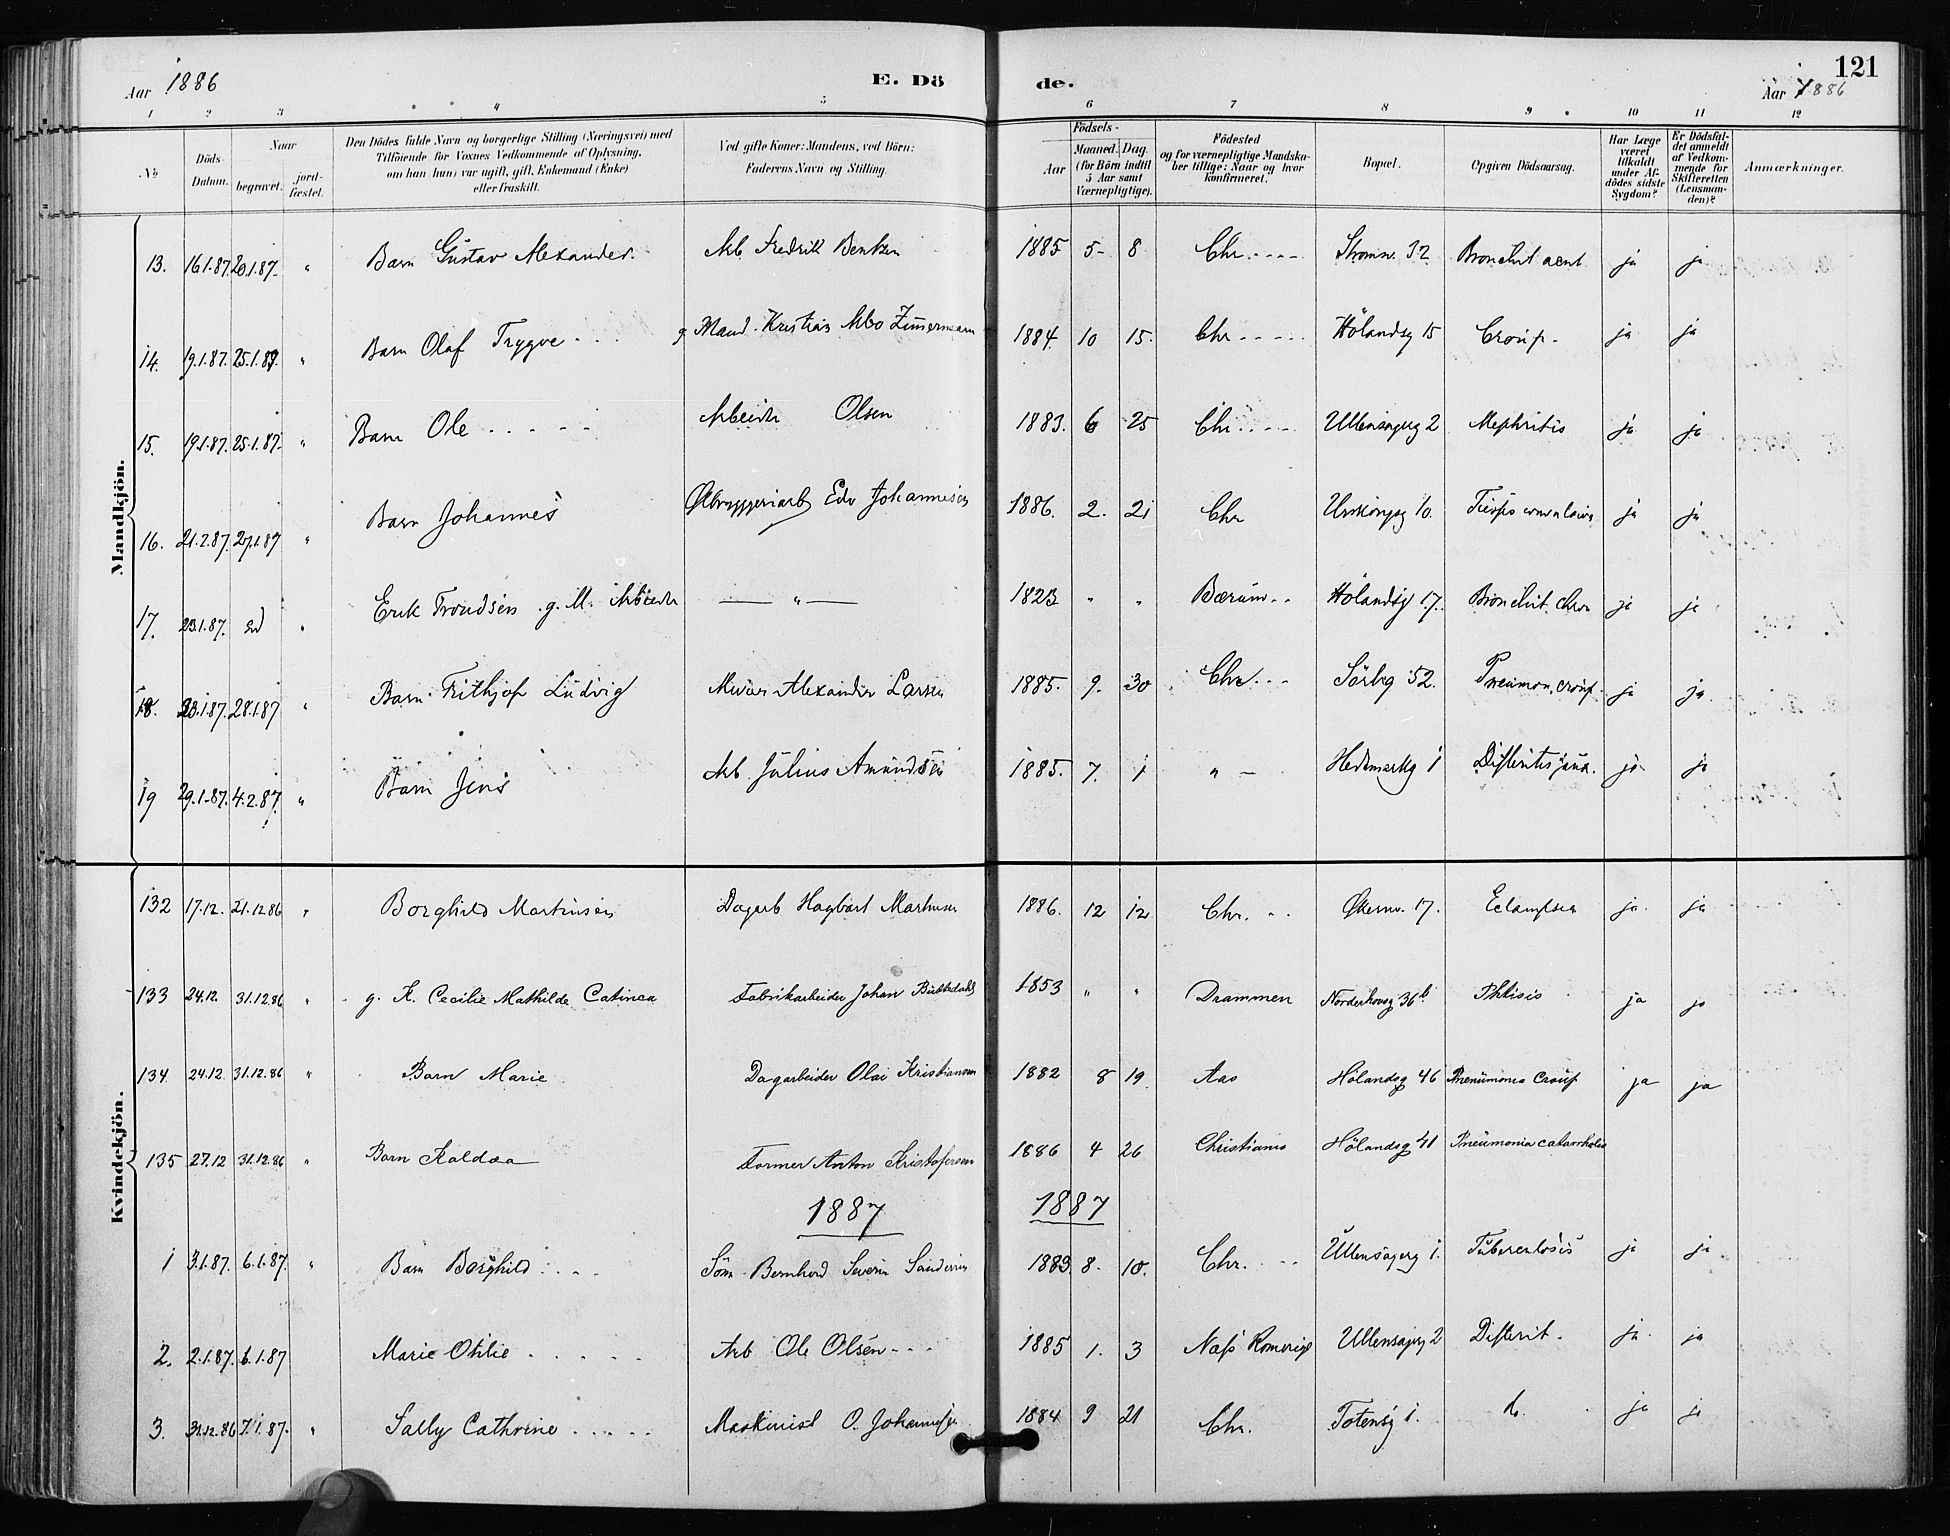 Aar 1886
E. Dö
de.
121
Aar 1886
1 2 3 4 5 6 7 8 9 10 11 12
No
Döds-Datum.
Naar
begravet.
jord-fæstet.
Den Dödes fulde Navn og borgerlige Stilling (Næringsvei) med
Tilföiende for Voxnes Vedkommende af Oplysning,
om han (hun) var ugift, gift, Enkemand (Enke)
eller fraskilt.
Ved gifte Koner: Mandens, ved Börn:
Faderens Navn og Stilling.
Födsels-
Aar
Maaned. Dag.
(for Börn indtil
5 Aar samt
Værnepligtige).
Födested
og for værnepligtige Mandska-
ber tillige: Naar og hvor
konfirmeret.
Bopæl.
Opgiven Dödsaarsag.
Har Læge
været
tilkaldt
under Af-
dödes sidste
Sygdom?
Er Dödsfal-
det anmeldt
af Vedkom-
mende for
Skifteretten
(Lensman-
den)?
Anmærkninger.
Mandkjön.
13. 16.1.87. 20.1.87. " Barn Gustav Alexander. Arb Fredrik Bentzen 1885 5- 8 Chr. Stromsv. 32 Bronchit acut ja ja
14. 19.1.87. 25.1.87. " Barn Olaf Trygve g Mand Kristian Zimermann 1884. 10 15. Chr Hölandsg 15 Croup. ja ja
15. 19.1.87. 25.1.87. " Barn Ole Arbeider Olsen 1883. 6 25 Chr. Ullensagerg 2 Nephritis ja ja
16. 21.1.87. 27.1.87 " Barn Johannes Ølbryggeriarb Edv Johannesen 1886. 2. 21 Chr Urskougsg 10. ja ja
17. 23.1.87. " Erik Trondsen g. M. Arbeider — " — 1823 " " Bærum Hölandsg 17. Bronchit. chron ja ja
18. 23.1.87. 28.1.87 " Barn Frithjof Ludvig Murer Alexander Larsen 1885. 9. 30 Chr. Sörbg 52. Pneumon. croup. ja ja
19 29.1.87. 4.2.87. " Barn Jens Arb. Julius Amundsen 1885. 7. 1 " — Hedemarkg 1 ja ja
Kvindekjön.
132 17.12. 21.12.86 " Borghild Martinsen Dagarb Hagbart Martinsen 1886. 12 12 Chr. Økernv. 17. Eclampsia ja. ja
133 24.12. 31.12.86 " g. K. Cecilie Mathilde Catinca Fabrikarbeider Johan 1853 " " Drammen Norderhovsg 36 b Phtisis ja ja
134 24.12. 31.12.86 " Barn Marie Dagarbeider Olai Kristiansen 1882 8 19 Aas Hölandsg 46 Pneumonia Croup ja ja
135 27.12 31.12.86 " Barn Kaldaa Former Anton Kristofersen 1886 4 26 Christiania Hölandsg 41 Pneumonia catarrhalis
1887
1887
1 3.1.87. 6.1.87. " Barn Borghild Söm Bernhard Severin 1883 8. 10. Chr. Ullensagerg 1. Tuberculosis ja ja
2. 2.1.87. 6.1.87 Marie Otilie Arb Ole Olsen 1885 1. 3 Næs Romerige Ullensagerg 2 Difterit. ja. ja
3. 31.12.86 7.1.87. " Sally Cathrine Maskinist O. Johannesen 1884 9 21 Chr. Totensg 1. do ja ja